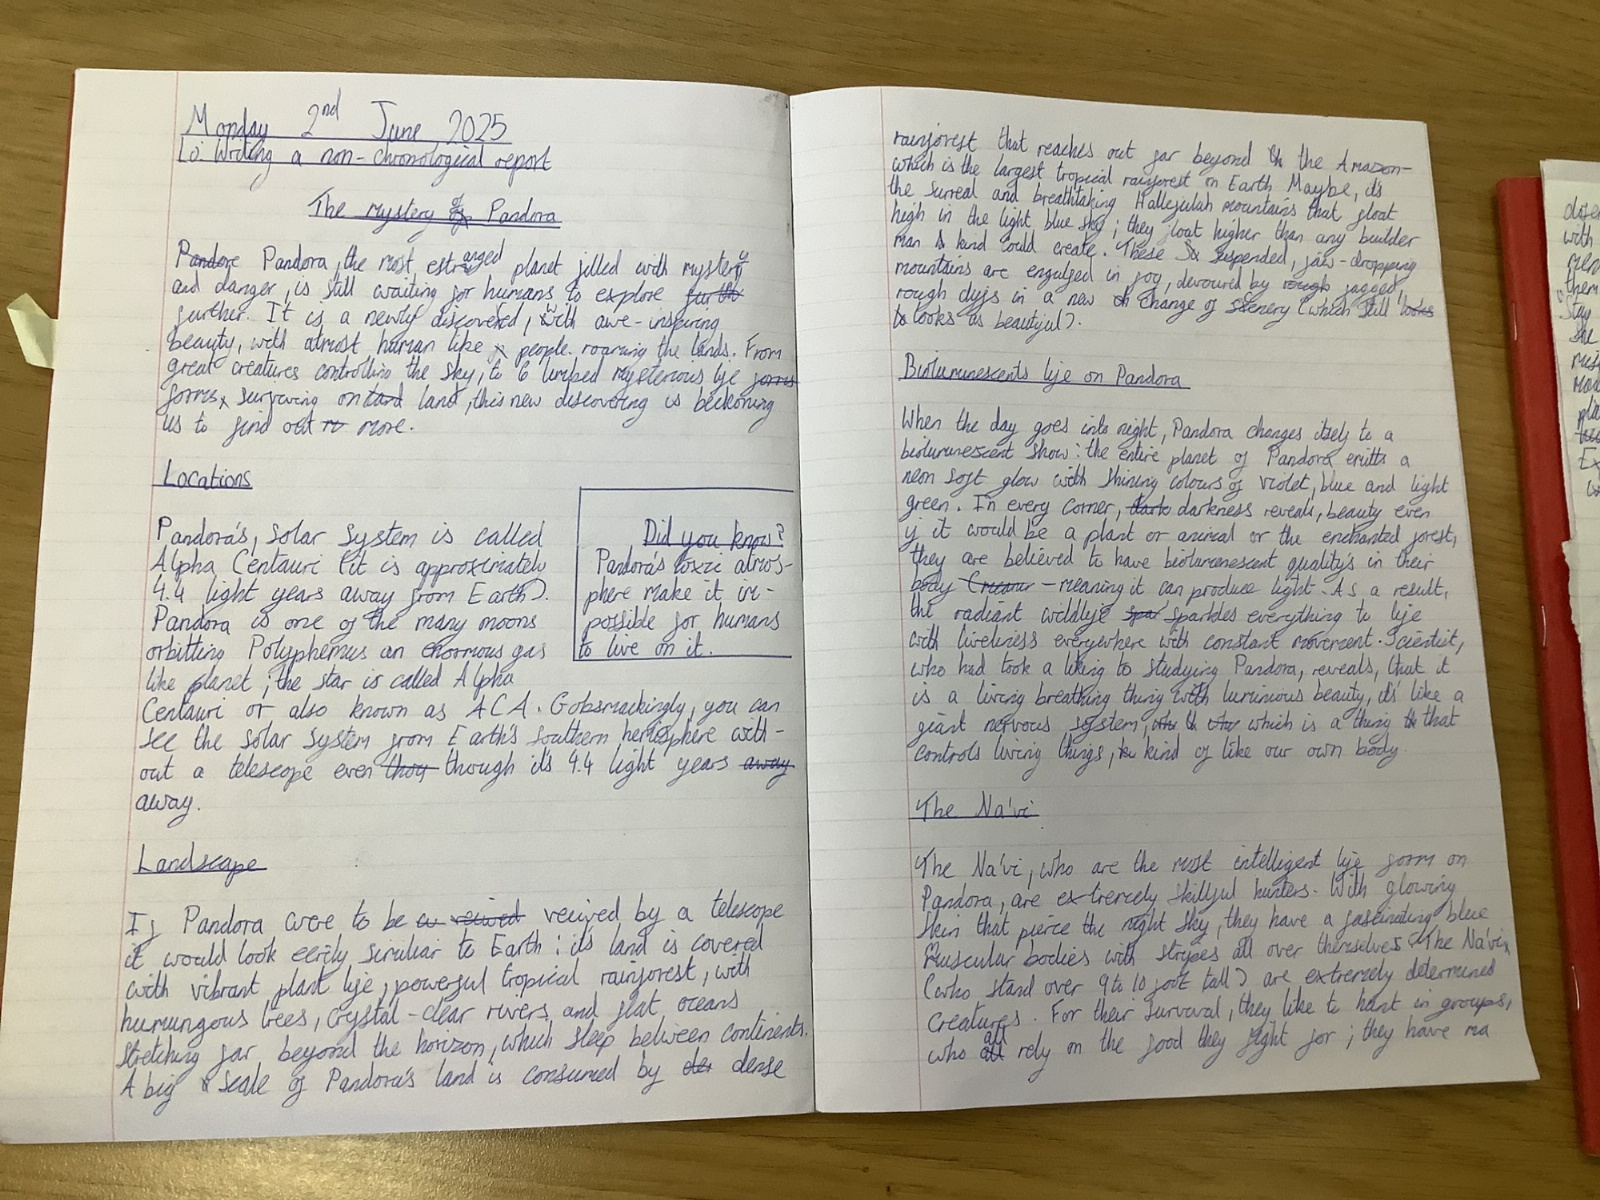 Monday 2nd June 2025
Lo: Writing a non-chronological report
The mystery of Pandora
Pandore Pandora, the most estranged planet filled with mystery
and danger, is still waiting for humans to explore furth
further. It is a newly discovered, with awe-inspiring
beauty, with almost human like people. roaming the lands. From
great creatures controlling the sky, to 6 limped mysterious life forms
forms, surviving on land, this new discovering is beckoning
us to find out more.
Locations
Pandora's, Solar System is called
Alpha Centauri (it is approximately
4.4 light years away from Earth).
Pandora is one of the many moons
orbitting Polyphemus an enormous gas
like planet; the star is called Alpha
Centauri or also known as ACA. Gobsmackingly, you can
see the Solar System from Earth's southern hemisphere with-
out a telescope even thoy though it's 4.4 light years away
away.
Did you know?
Pandora's toxic atmos-
phere make it im-
possible for humans
to live on it.
Landscape
If Pandora were to be recived by a telescope
it would look eerily simuliar to Earth: it's land is covered
with vibrant plant life, powerful tropical rainforest, with
humungous trees, crystal-clear rivers and flat oceans
stretching far beyond the horizon, which sleep between continents.
A big scale of Pandora's land is consumed by der dense
rainforest that reaches out far beyond the Amazon-
which is the largest tropical rainforest on Earth. Maybe, it's
the surreal and breathtaking Hallejulah mountains that float
high in the light blue sky; they float higher than any builder
man kind could create. These suspended, jaw-dropping
mountains are engulfed in fog, devoured by rough jagged,
rough clifs in a new change of scenery (which still looks
looks as beautiful).
Bioluminescents life on Pandora
When the day goes into night, Pandora changes itself to a
bioluminescent show: the entire planet of Pandora emitts a
neon soft glow with shining colours of violet, blue and light
green. In every corner, dark darkness reveals, beauty even
if it would be a plant or animal or the enchanted forest,
they are believed to have bioluminescent quality's in their
body - meaning it can produce light. As a result,
the radiant wildlife spar sparkles everything to life
with liveliness everywhere with constant movement. Scientist,
who had took a liking to studying Pandora, reveals, that it
is a living breathing thing with luminious beauty, it's like a
giant nervous system, which is a thing that
controls living things, kind of like our own body.
The Na'vi
The Na'vi, who are the most intelligent life form on
Pandora, are extremely skillful hunters. With glowing
skin that pierce the night sky, they have a fascinating blue
muscular bodies with stripes all over themselves. The Na'vi,
(who stand over 9 to 10 foot tall) are extremely determined
creatures. For their survival, they like to hunt in groups,
who all rely on the food they fight for; they have ma
with
them
"Stay